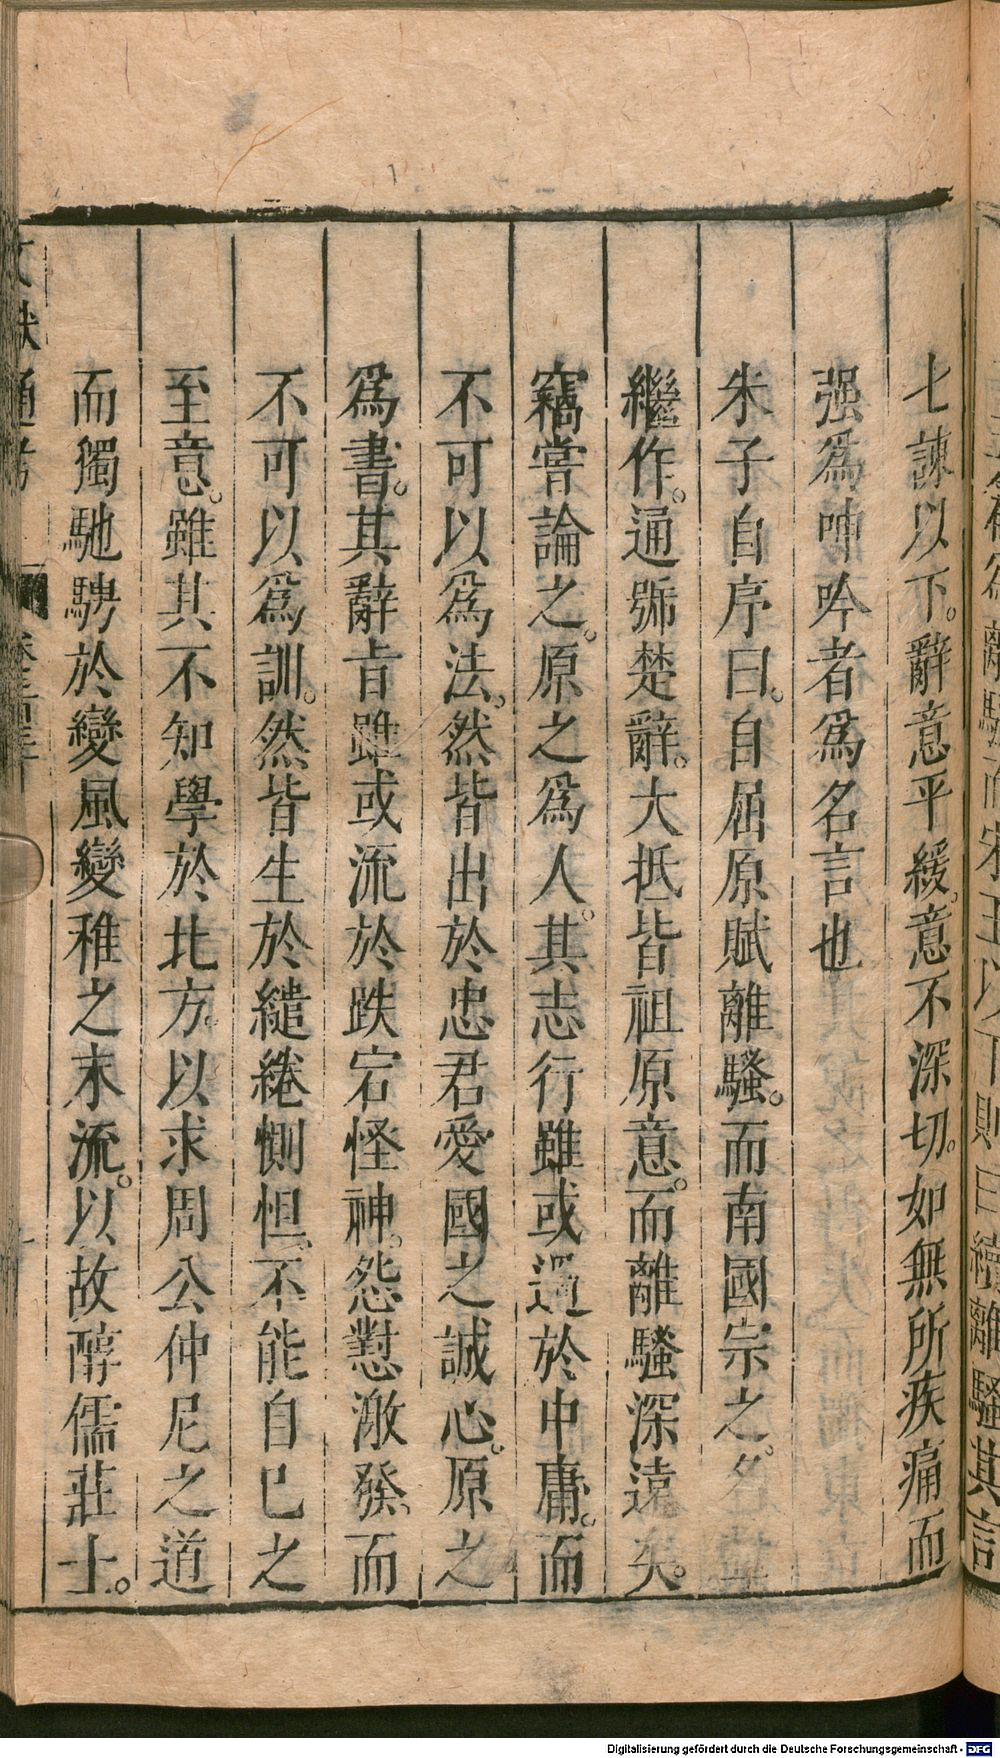 七諫以下。辭意平緩。意不深切。如無所疾痛而
强爲呻吟者爲名言也
朱子自序曰。自屈原賦離騷。而南國宗之。名章
繼作。通號楚辭。大抵皆祖原意。而離騷深遠矣。
竊嘗論之。原之爲人。其志行雖或過於中庸。而
不可以爲法。然皆出於忠君愛國之誠心。原之
爲書。其辭旨雖或流於跌宕怪神。怨懟激發。而
不可以爲訓。然皆生於繾綣惻怛、不能自已之
至意。雖其不知學於北方。以求周公仲尼之道
而獨馳騁於變風變稚之末流。以故醇儒莊士。
文獻通考
離騷而宋玉以下則曰續離騷其言
Digitalisierung gefördert durch die Deutsche Forschungsgemeinschaft - DFG